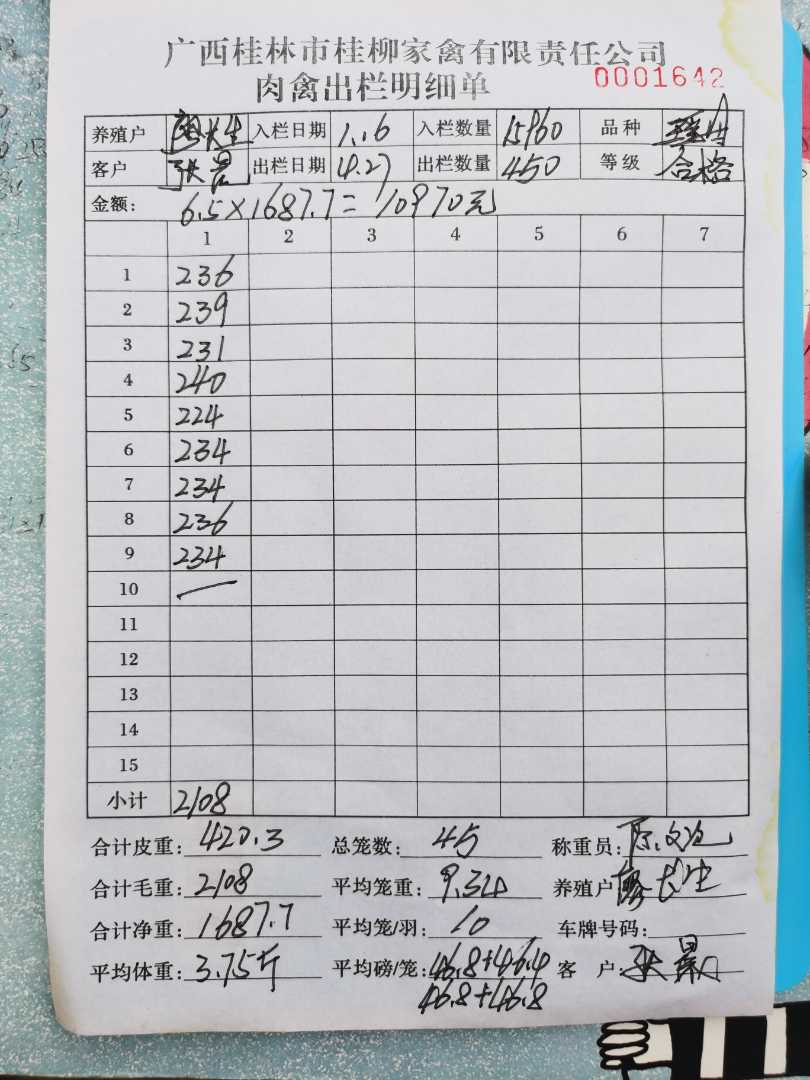 广西桂林市桂柳家禽有限责任公司
肉禽出栏明细单 0001642
养殖户 长生 入栏日期 1.16 入栏数量 15960 品种
客户 张 出栏日期 4.27 出栏数量 450 等级 合格
金额: 6.5×1687.7=10970元
1 2 3 4 5 6 7
1 236
2 239
3 231
4 240
5 224
6 234
7 234
8 236
9 234
10 —
11
12
13
14
15
小计 2108
合计皮重: 420.3 总笼数: 45 称重员: 陈文
合计毛重: 2108 平均笼重: 9.34 养殖户 长生
合计净重: 1687.7 平均笼/羽: 10 车牌号码:
平均体重: 3.75斤 平均磅/笼: 46.8+46.4 客 户 张
46.8+46.8